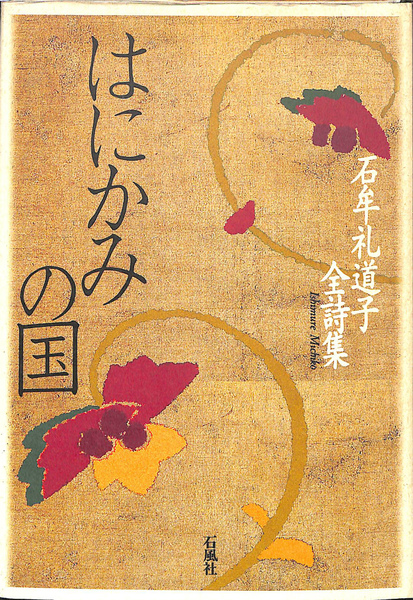 はにかみの国
石牟礼道子
全詩集
Ishimure Michiko
石風社